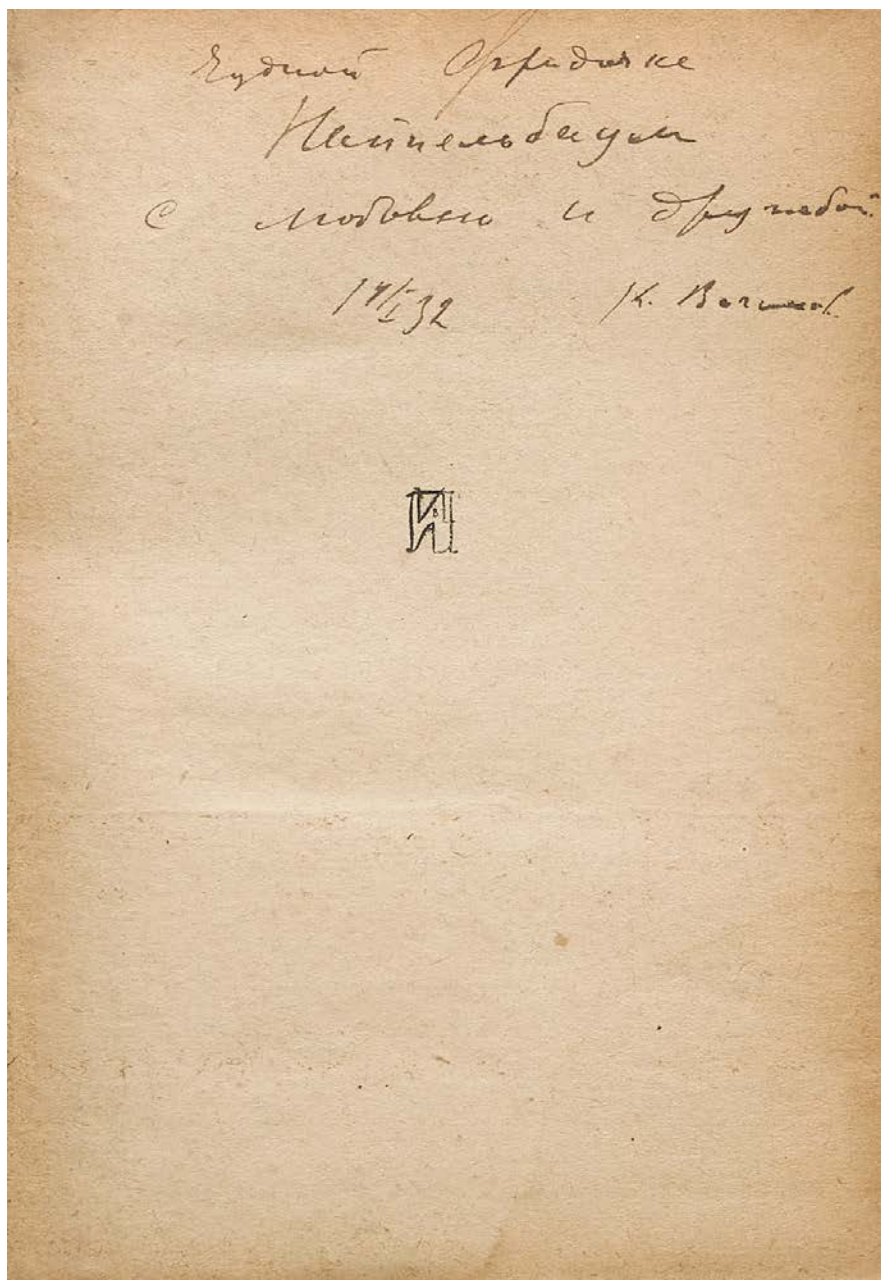 Чудной Фридочке
Наппельбаум
с любовью и дружбой
К. Вагинов.